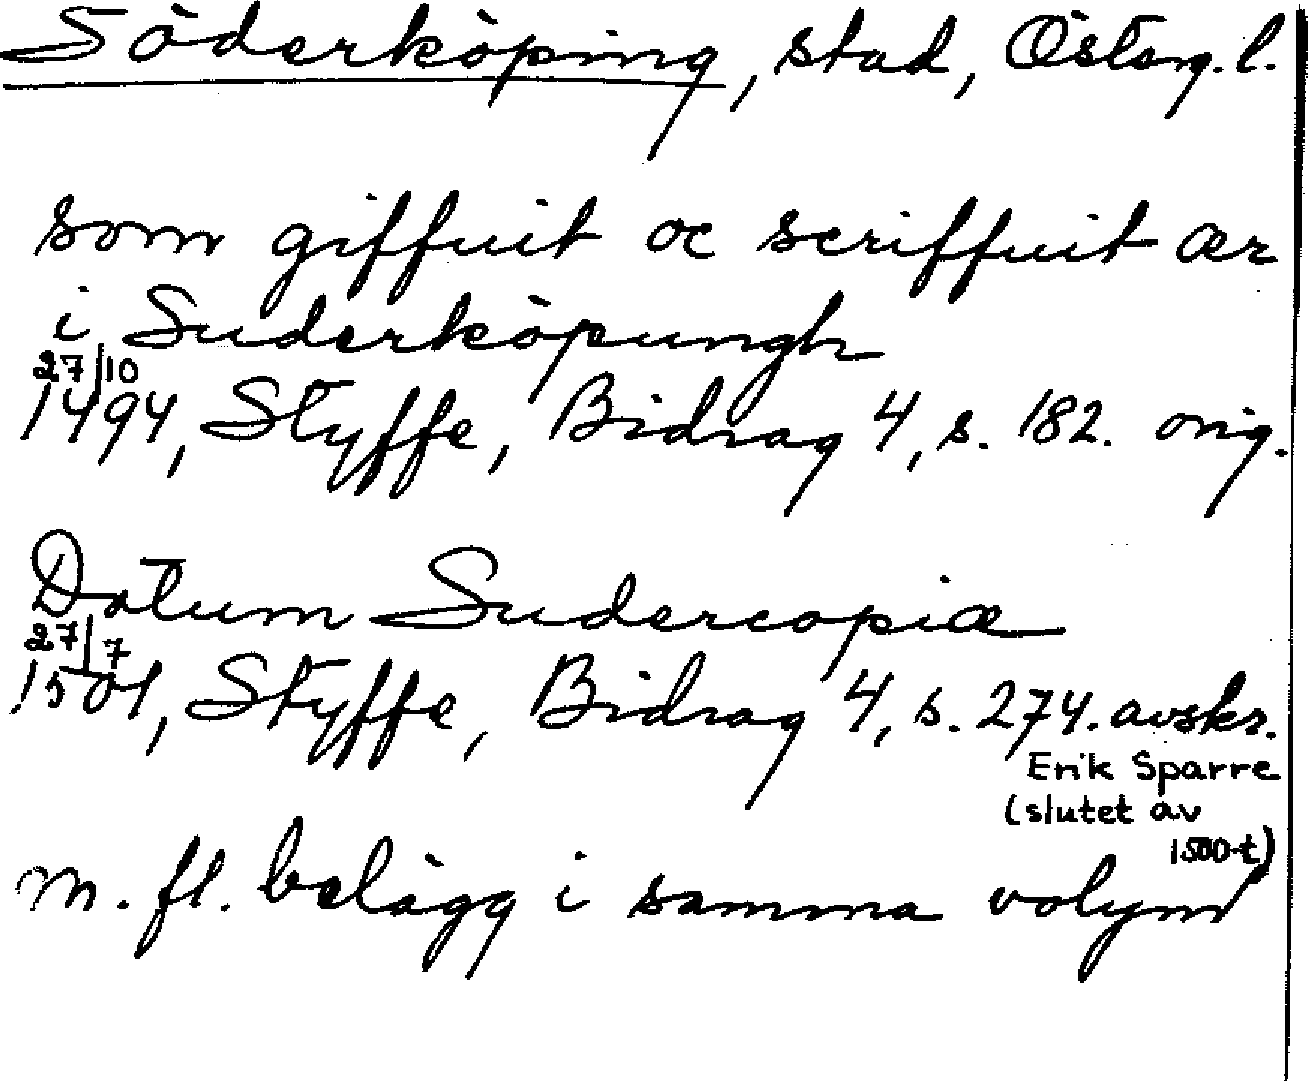 Söderköping, stad, Österg. l.
som giffuit oc scriffuit ær
i Suderköpungh
27/10
1494, Styffe, Bidrag 4, s. 182. orig.
Datum Sudercopiæ
27/7
1501, Styffe, Bidrag 4, s. 274. avskr.
Erik Sparre
(slutet av
1500-t)
m. fl. belägg i samma volym